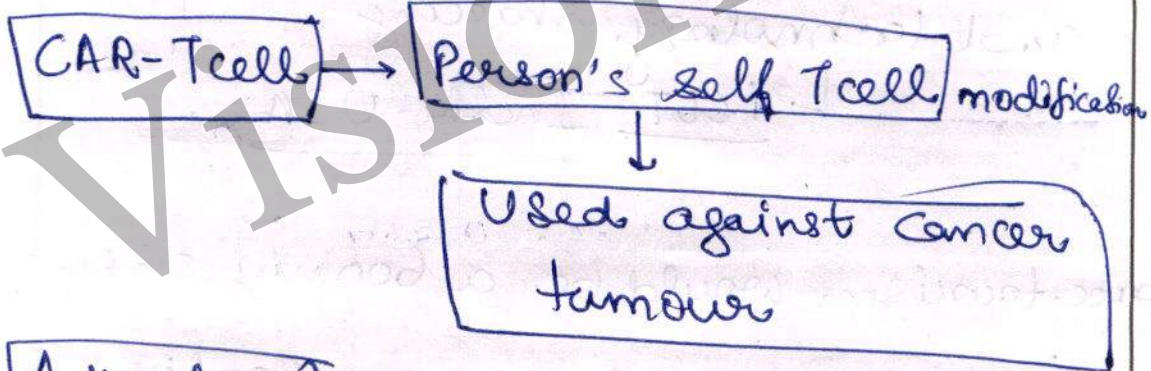 Vision
CAR-Tcell → Person's self Tcell modification
↓
Used against Cancer
tumour